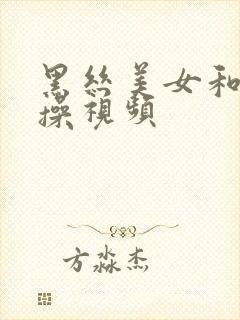 黑絲美女和
操視頻
方淼杰